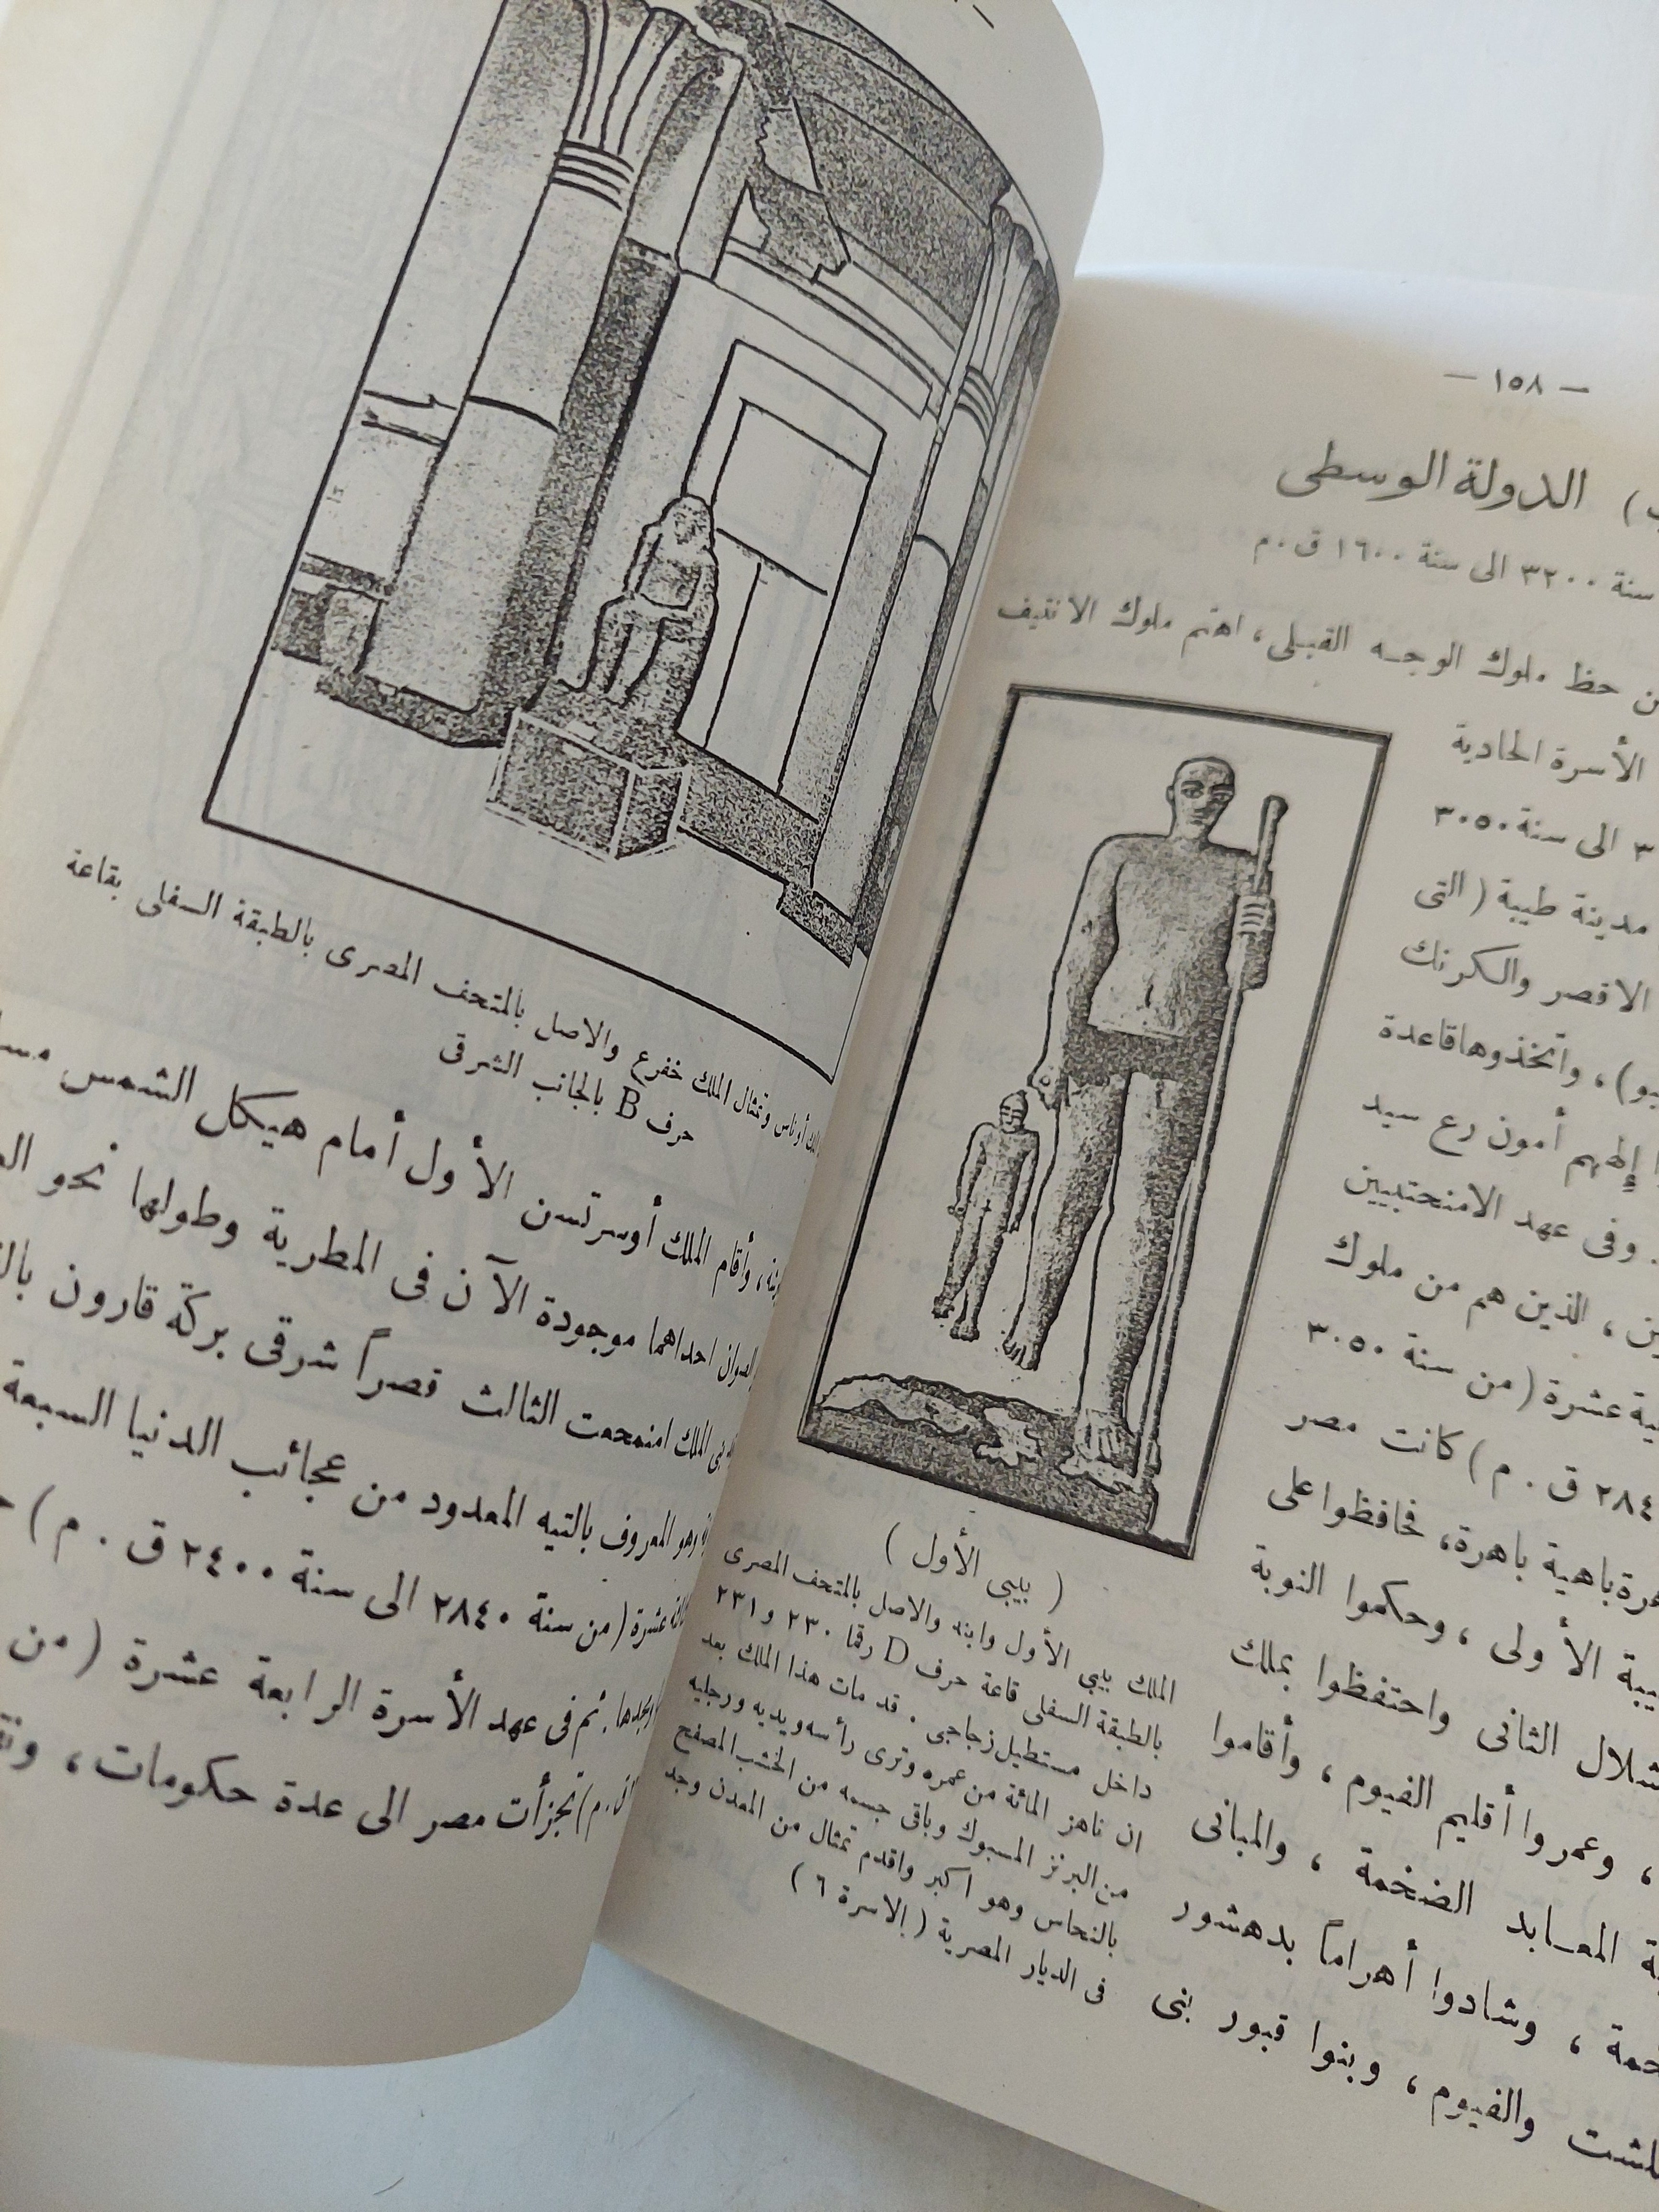 — ١٥٨ —
) الدولة الوسطى
سنة ٣٢٠٠ الى سنة ١٦٠٠ ق.م
حظ ملوك الوجه القبلى، اهتم ملوك الانتيف
الأسرة الحادية
٣ الى سنة ٣٠٥٠
مدينة طيبة ( التى
الاقصر والكرنك
)، واتخذوها قاعدة
إلههم أمون رع سيد
. وفى عهد الامنحتبيين
، الذين هم من ملوك
عشرة ( من سنة ٣٠٥٠
٢٨٤ ق . م ) كانت مصر
باهية باهرة، فحافظوا على
الأولى ، وحكموا النوبة
الثانى واحتفظوا بملك
، وعمروا أقليم الفيوم ، وأقاموا
المعابد الضخمة ، والمبانى
، وشادوا أهراماً بدهشور
والفيوم ، وبنوا قبور بنى
( بيبى الأول )
الملك بيبى الأول وابنه والاصل بالمتحف المصرى
بالطبقة السفلى قاعة حرف D رقما ٢٣٠ و ٢٣١
داخل مستطيل زجاجى . قد مات هذا الملك بعد
ان ناهز المائة من عمره وترى رأسه ويديه ورجليه
من البرنز المسبوك وباقى جسمه من الخشب المصفح
بالنحاس وهو اكبر واقدم تمثال من المعدن وجد
فى الديار المصرية ( الاسرة ٦ )
أوناس وتمثال الملك خفرع والاصل بالمتحف المصرى بالطبقة السفلى بقاعة
حرف B بالجانب الشرقى
، وأقام الملك أوسرتسن الأول أمام هيكل الشمس
احداهما موجودة الآن فى المطرية وطولها نحو
الملك امنمحعت الثالث قصراً شرقى بركة قارون
وهو المعروف بالتيه المعدود من عجائب الدنيا السبعة
عشرة ( من سنة ٢٨٤٠ الى سنة ٢٤٠٠ ق . م )
. ثم فى عهد الأسرة الرابعة عشرة ( من
ق . م ) تجزأت مصر الى عدة حكومات ،